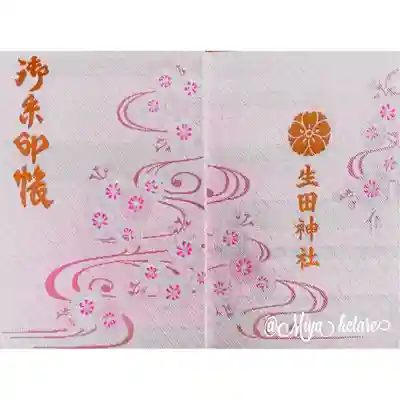 御朱印帳
生田神社
@Miya_hetare